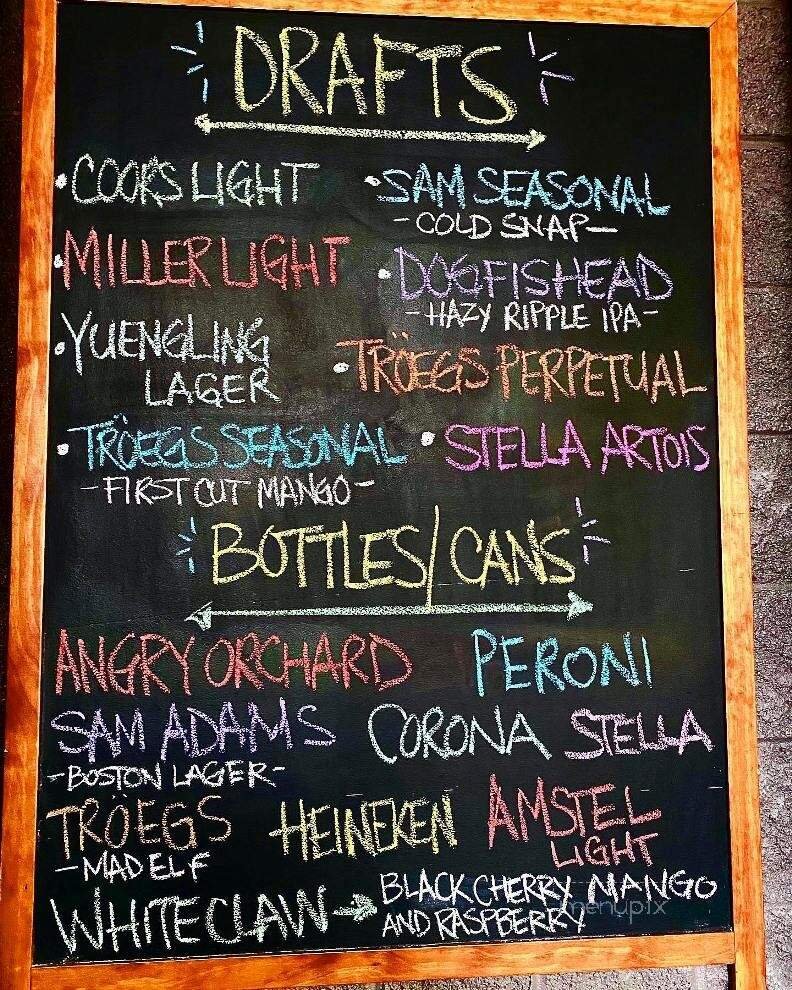 DRAFTS
• COORS LIGHT
• SAM SEASONAL
- COLD SNAP -
• MILLER LIGHT
• DOGFISHEAD
- HAZY RIPPLE IPA -
• YUENGLING
LAGER
• TRÖEGS PERPETUAL
• TRÖEGS SEASONAL
- FIRST CUT MANGO -
• STELLA ARTOIS
BOTTLES/CANS
ANGRY ORCHARD
PERONI
SAM ADAMS
- BOSTON LAGER -
CORONA
STELLA
TRÖEGS
- MAD ELF
HEINEKEN
AMSTEL
LIGHT
WHITECLAW → BLACK CHERRY MANGO
AND RASPBERRY
menupix